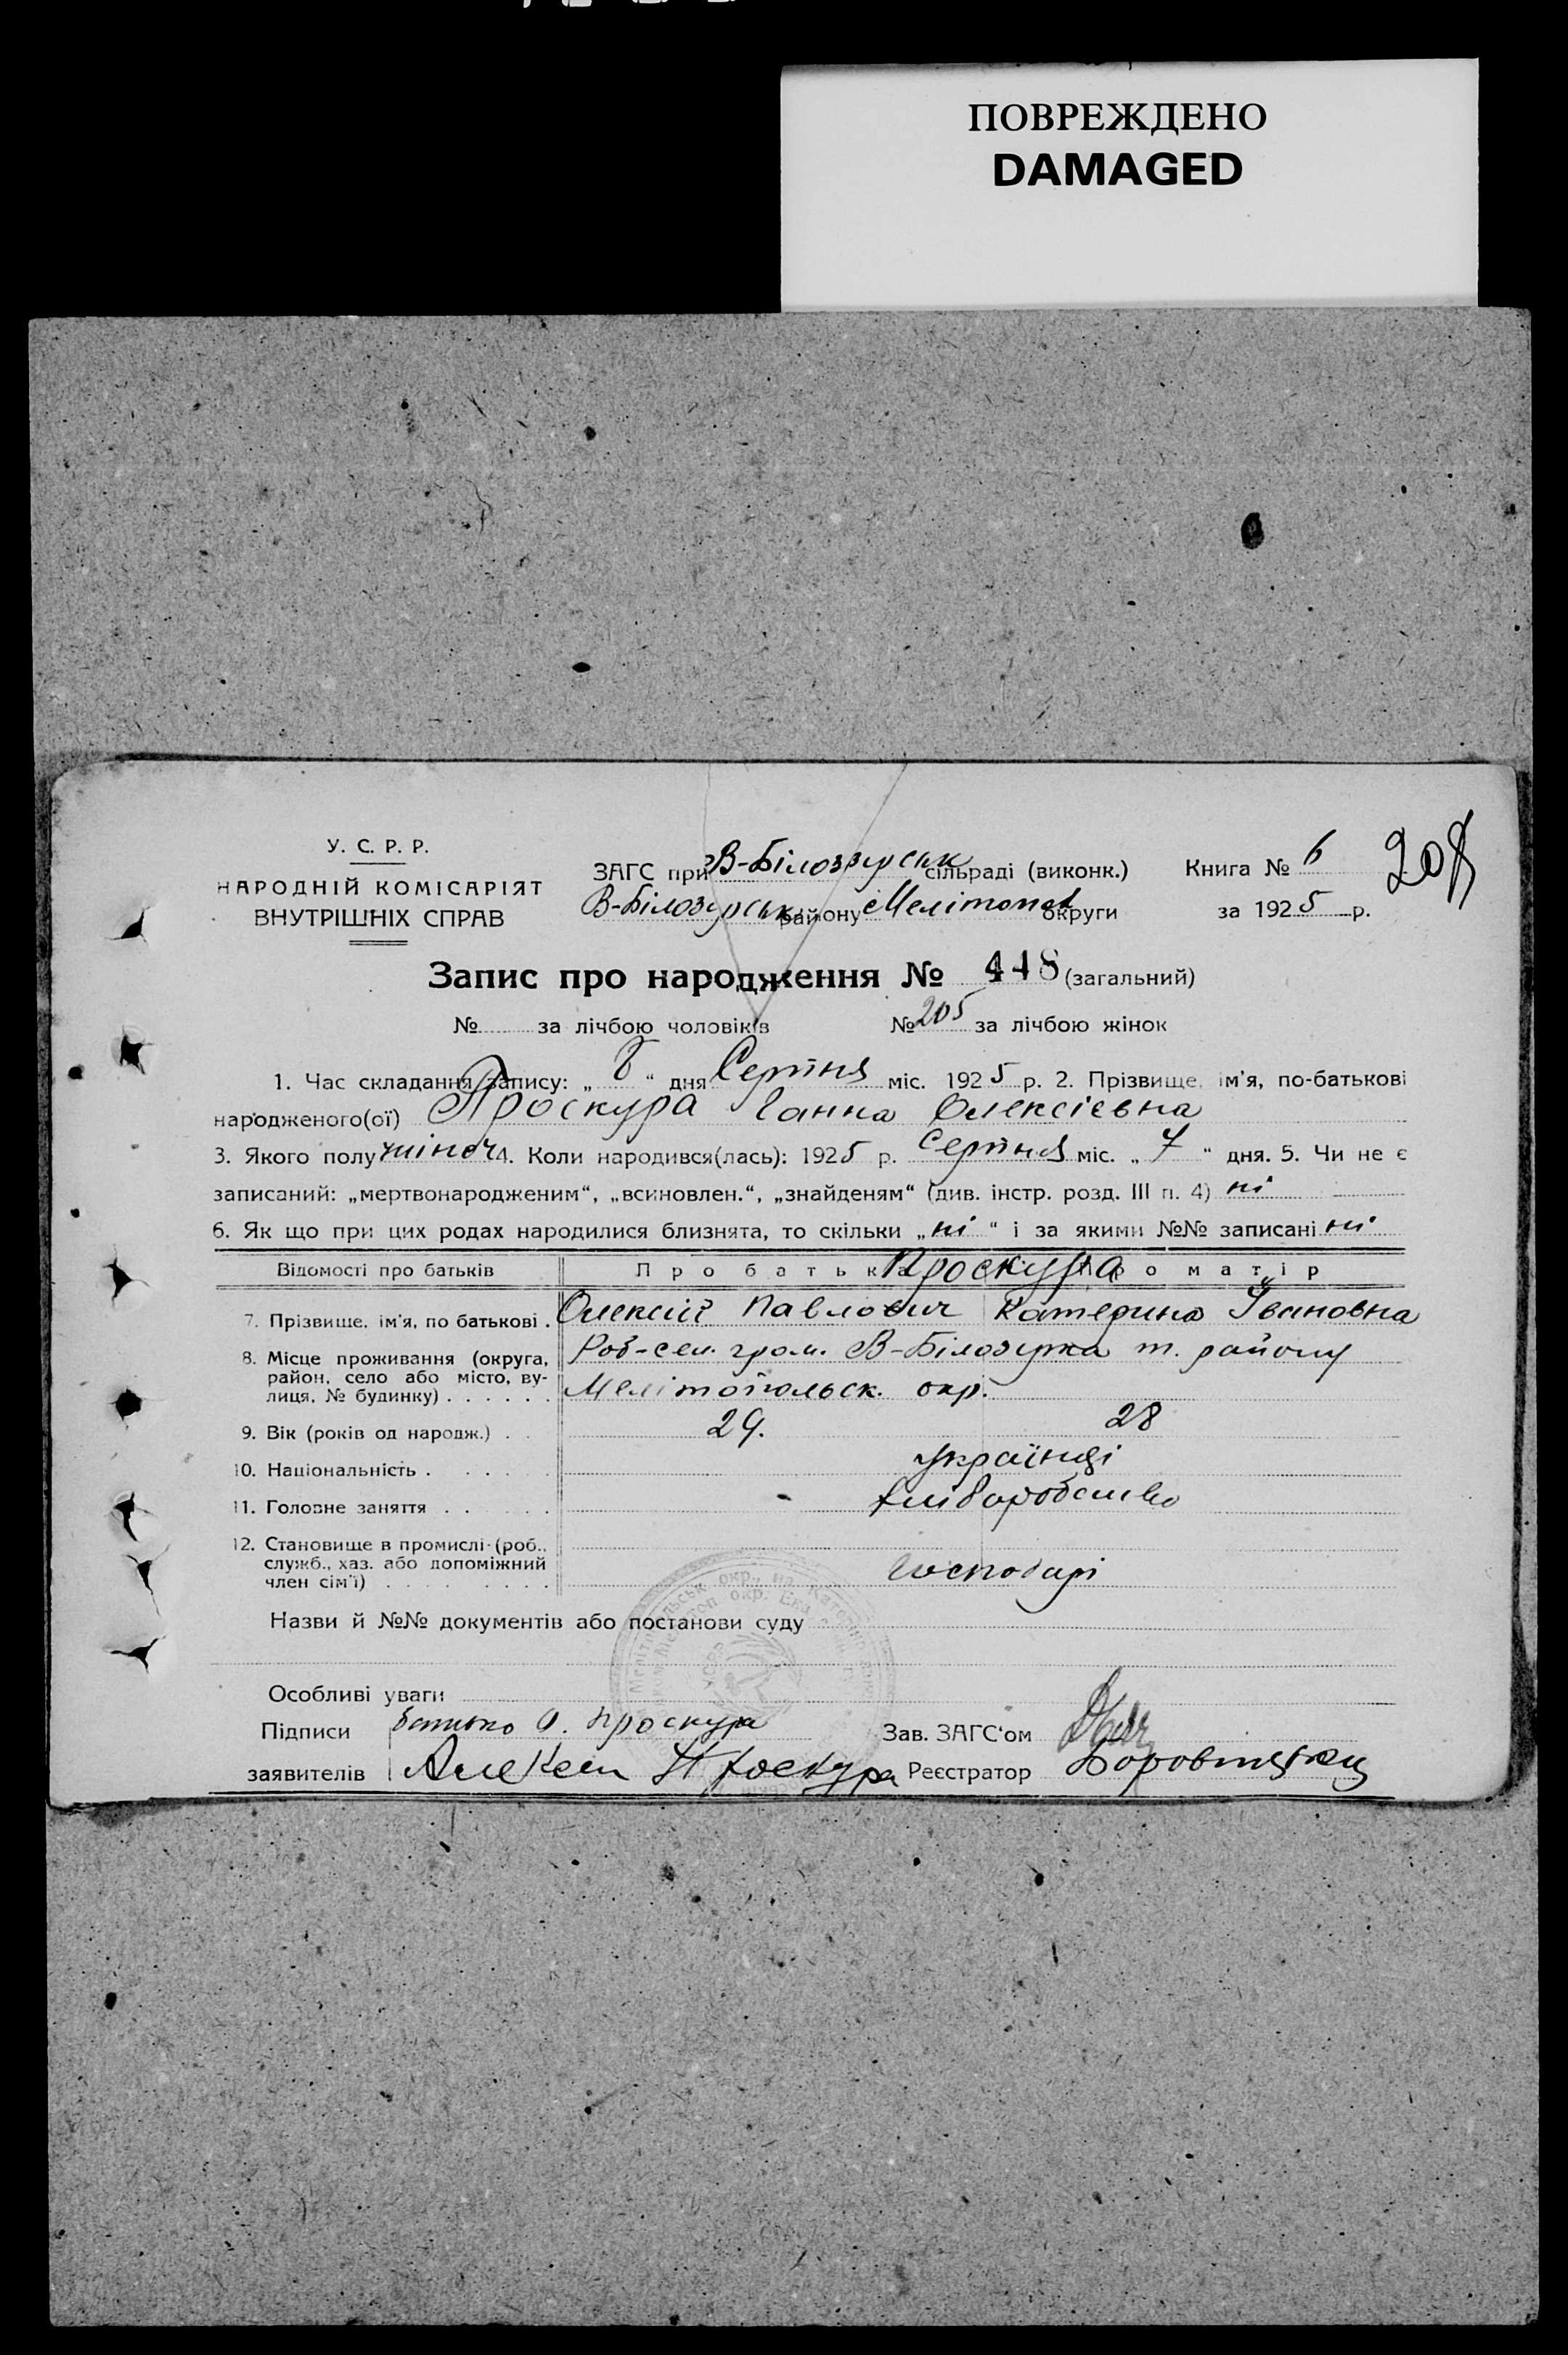 ПОВРЕЖДЕНО
DAMAGED
У. С. Р. Р.
НАРОДНІЙ КОМІСАРІЯТ
ВНУТРІШНІХ СПРАВ
ЗАГС при В-Білозерськ сільраді (виконк.)
В-Білозерськ району Мелітопол округи
Книга № 6
за 1925 р.
208
Запис про народження № 448 (загальний)
№ за лічбою чоловіків № 205 за лічбою жінок
1. Час складання запису: „ 8 “ дня Серпня міс. 1925 р. 2. Прізвище, ім'я, по-батькові
народженого(ої) Проскура Ганна Олексієвна
3. Якого полу жіноч 4. Коли народився(лась): 1925 р. Серпня міс. „ 7 “ дня. 5. Чи не є
записаний: „мертвонародженим“, „всиновлен.“, „знайденям“ (див. інстр. розд. III п. 4) ні
6. Як що при цих родах народилися близнята, то скільки „ ні “ і за якими №№ записані ні
Відомості про батьків Про батька Проскура Про матір
7. Прізвище, ім'я, по батькові . Олексій Павлович Катерина Івановна
8. Місце проживання (округа, район, село або місто, вулиця, № будинку) . . . . . . Роб-сел. гром. В-Білозірка т. району
Мелітопольск. окр.
9. Вік (років од народж.) . . 29. 28
10. Національність . . . . . українці
11. Головне заняття . . . . хліборобство
12. Становище в промислі (роб., служб., хаз. або допоміжний член сім'ї) . . . . . . . . Господарі
Назви й №№ документів або постанови суду
Особливі уваги
Підписи батько О. Проскура Зав. ЗАГС'ом
заявителів Алексеи Проскура Реєстратор